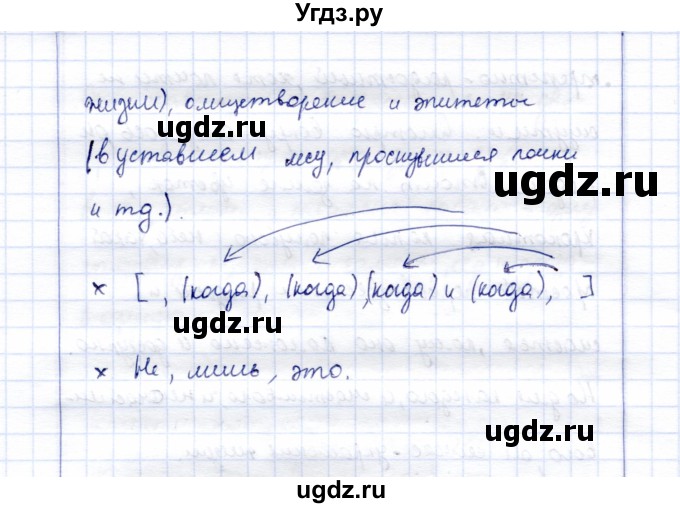 Угдз.ру
жизни), олицетворение и эпитеты
ugdz.ru
(в уставшем лесу, проснувшиеся почки
ugdz.ru
и т.д.).
× [ , (когда), (когда), (когда) и (когда), ]
ugdz.ru
× Не, лишь, это.
ugdz.ru
ugdz.ru